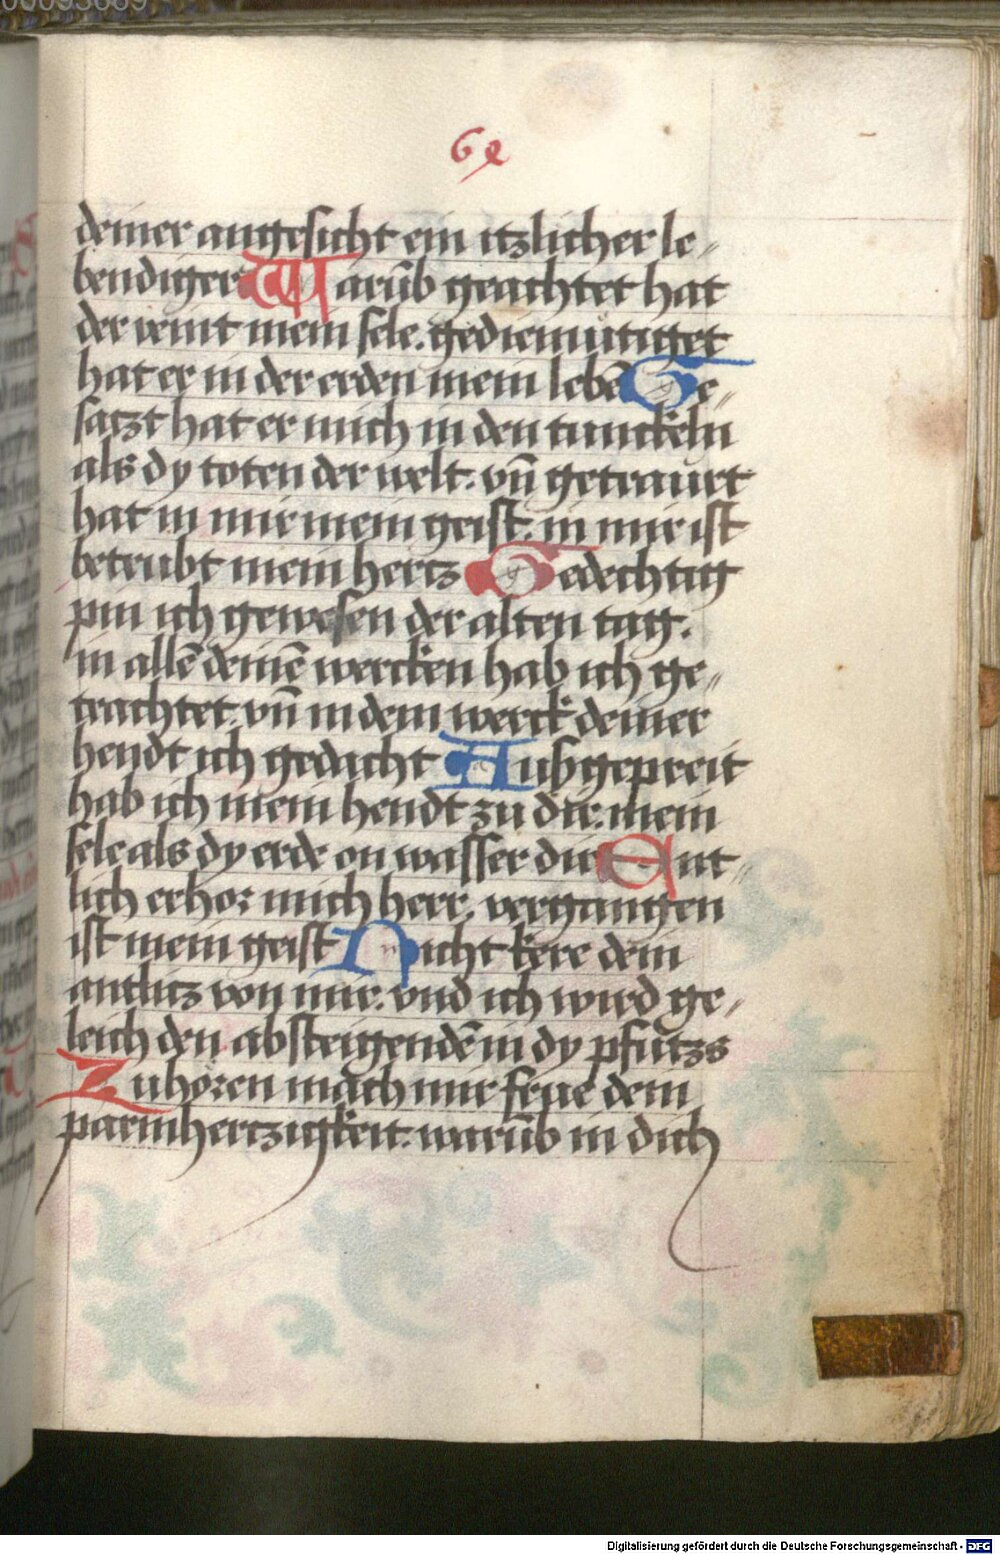 62
deiner angesicht ein itzlicher le„
bendiger Warūb geachtet hat
der veint mein sele. gediemütiget
hat er in der erden mein lebē Ge„
satzt hat er mich in den tunckeln
als dy toten der welt. vn̄ getraurt
hat in mir mein geist. in mir ist
betrubt mein hertz Gedechtig
pin ich gewesen der alten tag.
in allē deinē wercken hab ich ge„
trachtet. vn̄ in dem werck deiner
hendt ich gedacht Ausgepreit
hab ich mein hendt zu dir. mein
sele als dy erde on wasser dir Ent„
lich erhor mich herr. vergangen
ist mein geist Nicht kere dein
antlitz von mir. vnd ich wird ge„
leich den absteigendē in dy pfützs
Zuhoren mach mir frue dein
parmhertzigkeit. warūb in dich
Digitalisierung gefördert durch die Deutsche Forschungsgemeinschaft - DFG